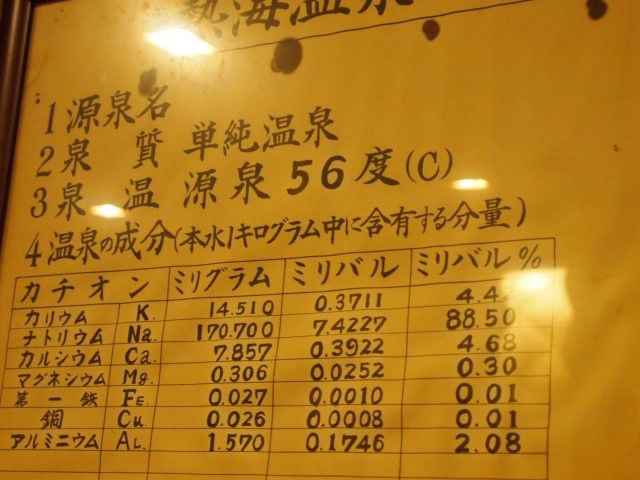 熱海温泉
1 源泉名
2 泉 質 単純温泉
3 泉 温 源泉 56度(C)
4 温泉の成分(本水1キログラム中に含有する分量)
カチオン ミリグラム ミリバル ミリバル%
カリウム K. 14.510 0.3711 4.4
ナトリウム Na. 170.700 7.4227 88.50
カルシウム Ca. 7.857 0.3922 4.68
マグネシウム Mg. 0.306 0.0252 0.30
第一鉄 FE 0.027 0.0010 0.01
銅 Cu. 0.026 0.0008 0.01
アルミニウム AL. 1.570 0.1746 2.08